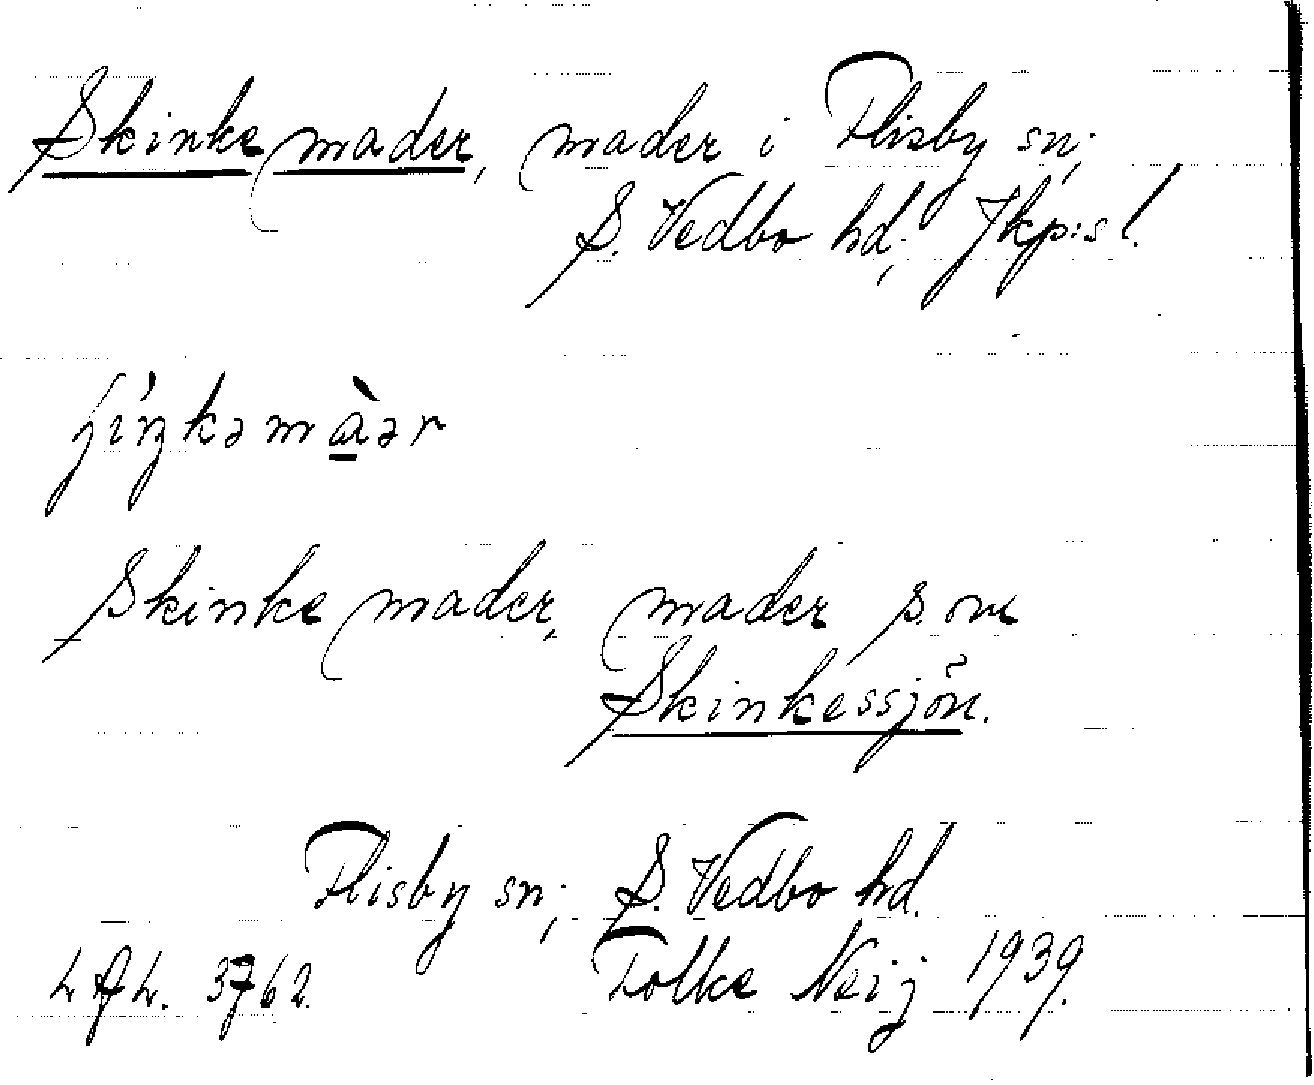 Skinkemader, mader i Flisby sn;
S. Vedbo hd; Jkp:s l.
Skinkemader, mader s. om
Skinkessjön.
Flisby sn; S. Vedbo hd.
Folke Neij 1939.
3762.